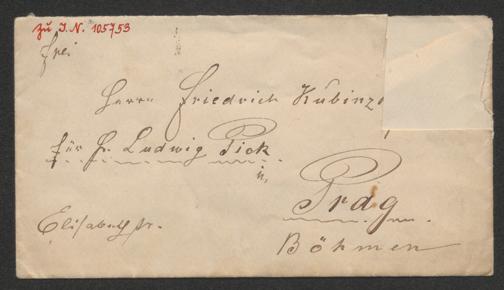 Zu I. N. 105753
frei
Herrn Friedrich Kubinz
für H. Ludwig Pick
in
Prag
Elisabethstr.
Böhmen